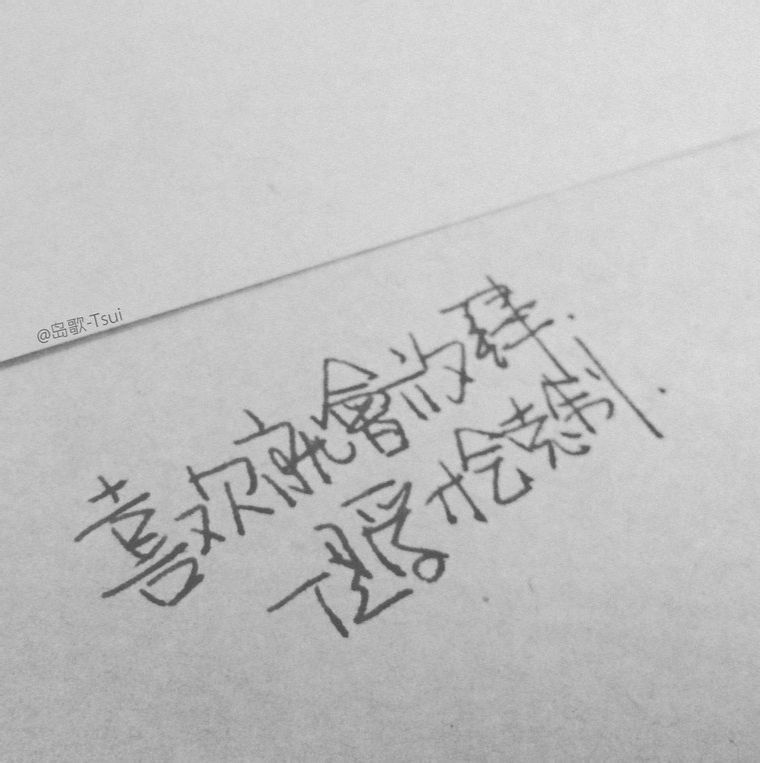 @岛歌-Tsui
喜欢就會放肆.
但愛才会克制.